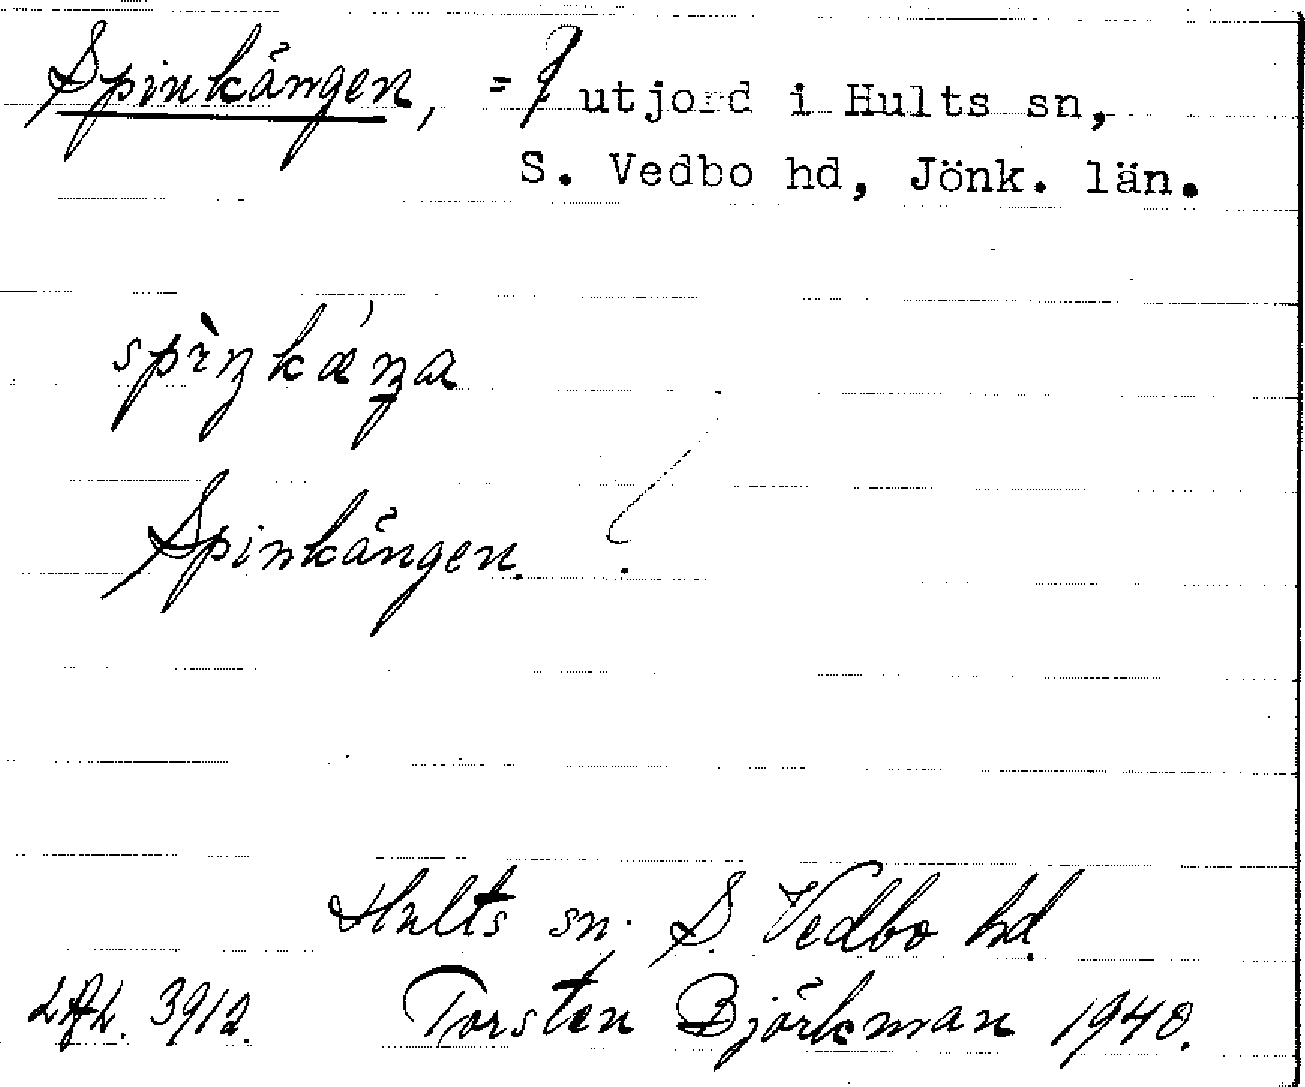 Spinkängen, = utjord i Hults sn,
S. Vedbo hd, Jönk. län.
spìŋkǽŋa
Spinkängen.
Hults sn. S. Vedbo hd.
3912. Torsten Björkman 1940.